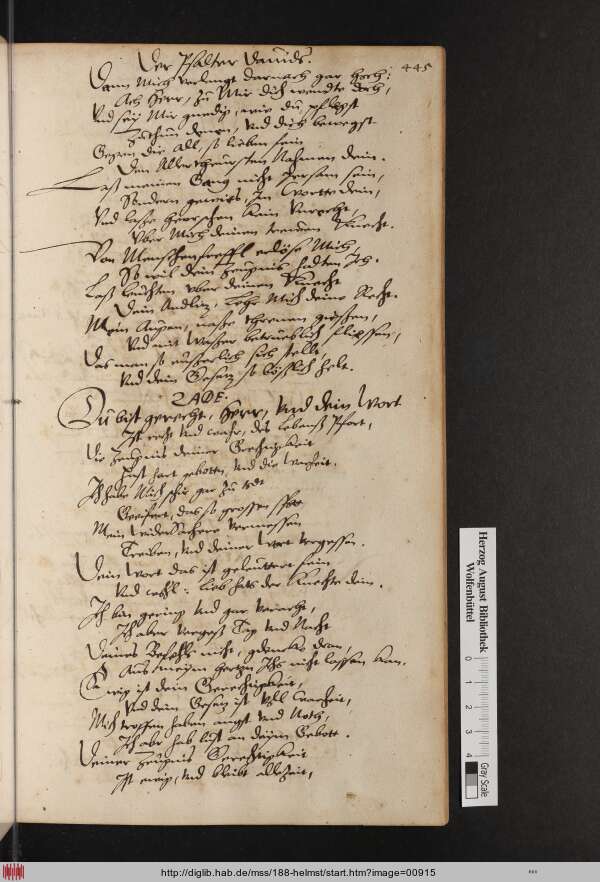 Der Psalter Dauids.
445
Dann Mich verlangt darnach gar hoch:
Ach Herr, zu Mir dich wendte doch,
Vnd sey Mir gnedig, wie du pflegst
Zuthun denen, Vnd dich bewegst
Gegen die all, so lieben sein
Den Allerthewrsten Nahmen dein.
Laß meinen Gang nicht sein,
Sondern gewiß, Im wortte dein,
Vnd laße herschen kein Vnrecht
Vber Mich deinen trewen Knecht.
Von Menschenfreffl erlöse Mich,
So will dein Zeugnis halten Ich.
Laß leuchten vber deinen Knecht
Dein Andlitz, Lehr Mich deine Recht.
Mein Augen, naße threnen giessen,
Vnd mit Waßer betrueblich fliessen,
Das man so eusserlich sich stellt
Vnd dein Gesetz so böslich helt.
ZADE.
Du bist gerecht, Herr, Vnd dein Wort
Ist recht Vnd war, des Lebens Pfort,
Die Zeugnis deiner Gerechtigkeit
Hast hart gebotten, Vnd die Warheit.
Ich habe Mich schir gar zu todt
Geeifert, das so grossen spott
Mein Widersachere vermessen
Treiben, Vnd deiner Wort vergessen.
Dein Wort das ist geleuttert fein
Vnd wohl: lieb hats der Knechte dein.
Ich bin gering Vnd gar veracht,
Ich aber vergeß Tag Vnd Nacht
Deines Befehls nicht, gedencke dran,
Aus meinem hertzen Ichs nicht lassen kan.
Ewig ist dein Gerechtigkeit,
Vnd dein Gesetz ist Voll Warheit,
Mich troffen haben angst Vnd Noth,
Ich abr hab lust an deinem Gebott.
Deiner Zeugnis Gerechtigkeit
Ist ewig, Vnd bleibt allezeit,
Herzog August Bibliothek
Wolfenbüttel
0 1 2 3 4
Gray Scale
http://diglib.hab.de/mss/188-helmst/start.htm?image=00915